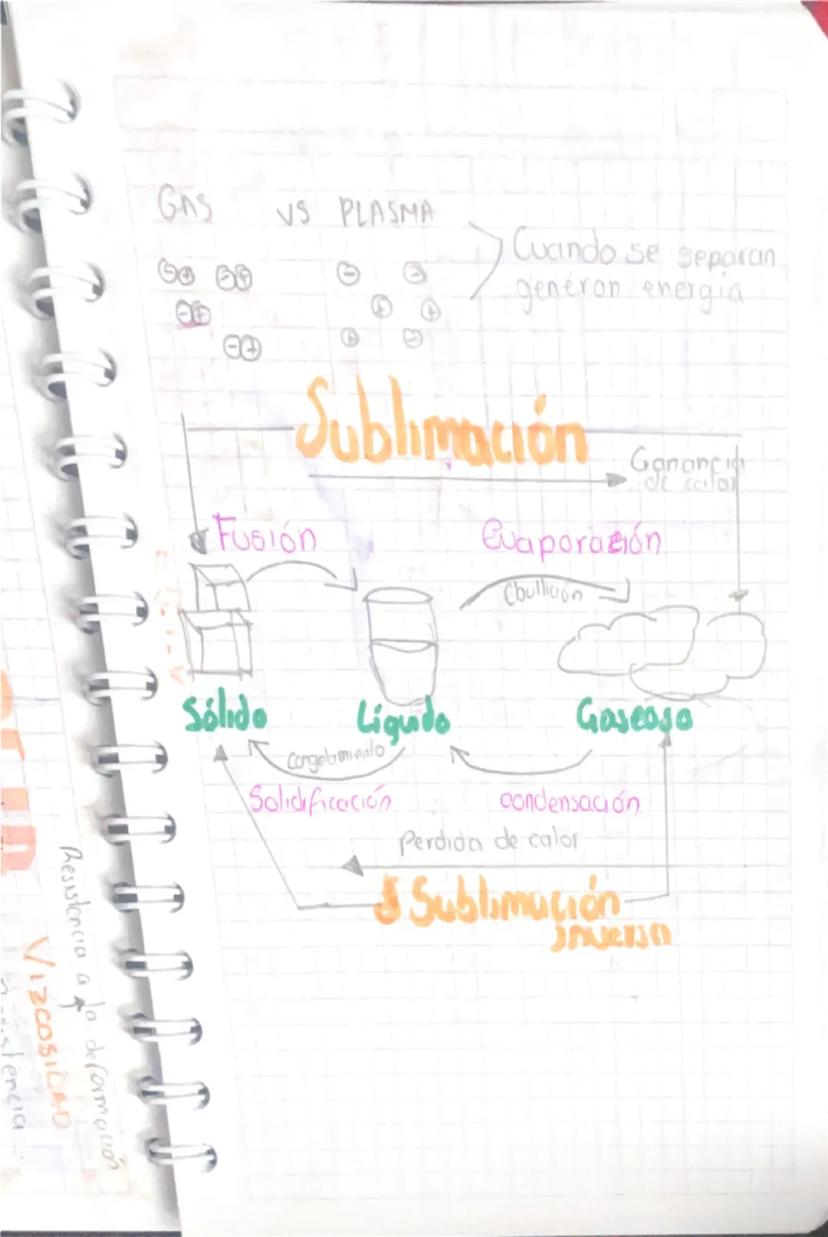 GAS VS PLASMA
Cuando se separan
generan energia
Sublimación
Ganancia
de calor
Fusión
Evaporación
Ebullición
Sólido
Líquido
Gaseoso
Congelamiento
Solidificación
condensación
Perdida de calor
Sublimación
inversa
Resistencia a la deformación
VIZCOSIDAD